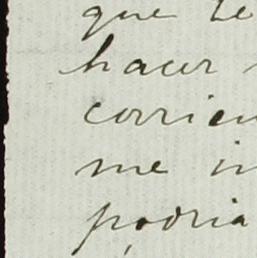 que te
hacer
corrien
me in
podria